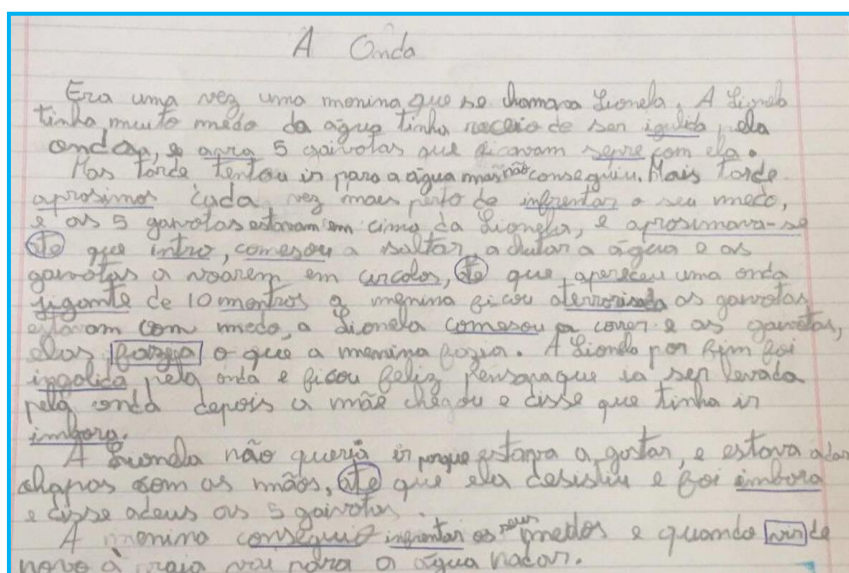 A Onda
Era uma vez uma menina que se chamava Lionela. A Lionela
tinha muito medo da água tinha receio de ser igulida pela
ondas, e avia 5 gaivotas que ficavam sepre com ela.
Mas tarde tentou ir para a água mas não conseguiu. Mais tarde
aprosimos cada vez mais perto de infrentar o seu medo,
e as 5 gaivotas estavam em cima da Lionela, e aprosimava-se
ate que intro, comesou a saltar, a chutar a água e as
gaivotas a voarem em circolos, ate que, apereceu uma onda
jigante de 10 montros a menina ficou aterrorisada as gaivotas
estavam com medo, a Lionela comesou a correr e as gaivotas,
elas fazia o que a menina fazia. A Lionela por fim foi
ingolida pela onda e ficou feliz que ia ser levada
pela onda depois a mãe chegou e disse que tinha ir
imbora.
A Lionela não queria ir porque estava a gostar, e estava a dar
chapas com as mãos, ate que ela desistiu e foi imbora
e disse adeus as 5 gaivotas.
A menina conseguio infrentar os seus medos e quando vir de
novo à praia vai para a água nadar.